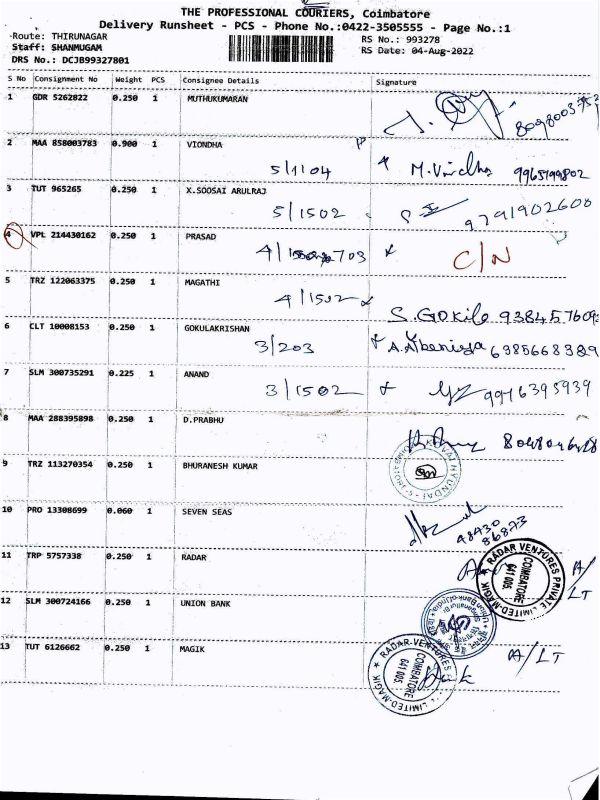 THE PROFESSIONAL COURIERS, Coimbatore
Delivery Runsheet - PCS - Phone No.:0422-3505555 - Page No.:1
Route: THIRUNAGAR
RS No.: 993278
Staff: SHANMUGAM
RS Date: 04-Aug-2022
DRS No.: DCJB99327801
S No Consignment No Weight PCS Consignee Details Signature
1 GDR 5262822 0.250 1 MUTHUKUMARAN
2 MAA 858003783 0.900 1 VIONDHA
5/1104 M. Vindha 9965199802
3 TUT 965265 0.250 1 X.SOOSAI ARULRAJ
5/1502 9791902600
4 VPL 214430162 0.250 1 PRASAD
4/ 703 C/N
5 TRZ 122063375 0.250 1 MAGATHI
4/1502
S. GOKILA
6 CLT 10008153 0.250 1 GOKULAKRISHAN
3/203 6385668389
7 SLM 300735291 0.225 1 ANAND
3/1502 9976395939
8 MAA 288395898 0.250 1 D.PRABHU
9 TRZ 113270354 0.250 1 BHURANESH KUMAR
KOVAI HYUNDAI
10 PRO 13308699 0.060 1 SEVEN SEAS
98430
86873
11 TRP 5757338 0.250 1 RADAR
RADAR VENTURES PRIVATE LIMITED-MAGIK
COIMBATORE
641 005.
A/LT
12 SLM 300724166 0.250 1 UNION BANK
13 TUT 6126662 0.250 1 MAGIK
RADAR VENTURES
LIMITED-MAGIK
COIMBATORE
641 005.
A/LT